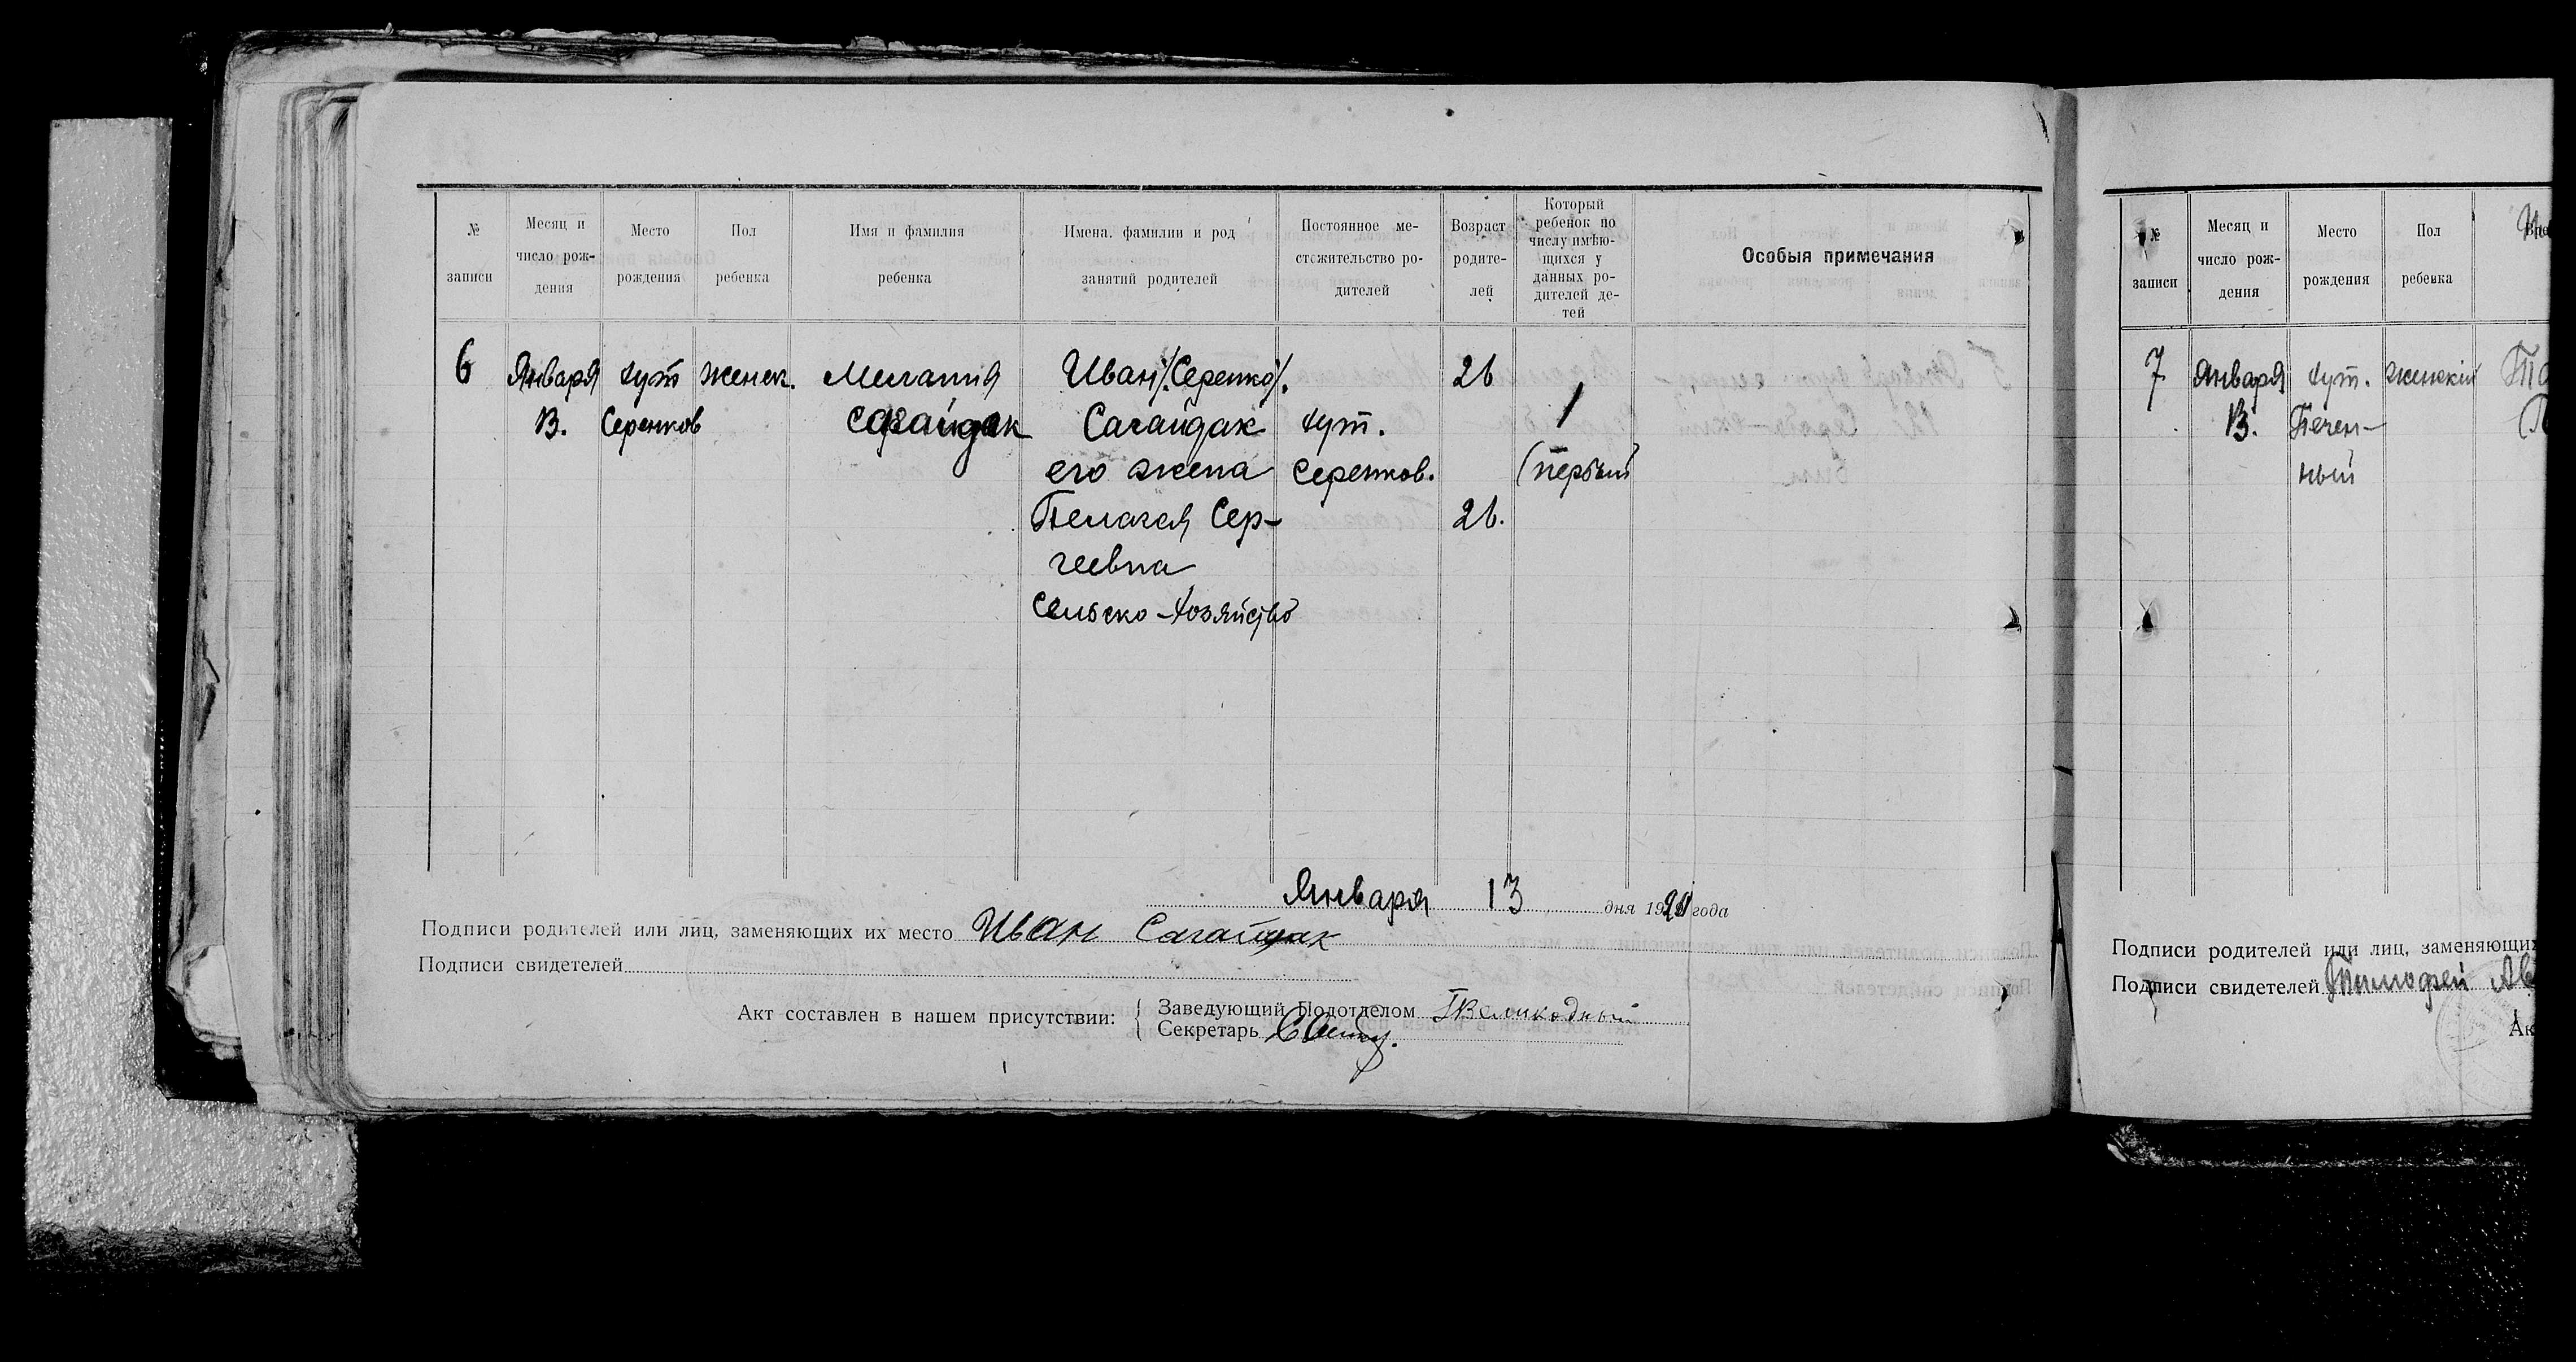 № записи
Месяц и число рож-дения
Место рождения
Пол ребенка
Имя и фамилия ребенка
Имена. фамилии и род занятий родителей
Постоянное ме-стожительство ро-дителей
Возраст родите-лей
Который ребенок по числу имѣю-щихся у данных ро-дителей де-тей
Особыя примечания
6
Января
13.
хут
Серенков
женск.
Мелания
Сагайдак
Иван /Серенко/.
Сагайдак
его жена
Пелагея Сер-
геевна
Сельско-хозяйство
хут.
Серенков.
26
26.
1
(первый
Января 13 дня 19 года
Подписи родителей или лиц, заменяющих их место Иван Сагайдак
Подписи свидетелей
Акт составлен в нашем присутствии:
Заведующий Подотделом Великодный
Секретарь
№ записи
Месяц и число рож-дения
Место рождения
Пол ребенка
7
Января
13.
хут.
Печен-
ный
женский
Подписи родителей или лиц, заменяющих
Подписи свидетелей Тимофей
Ак